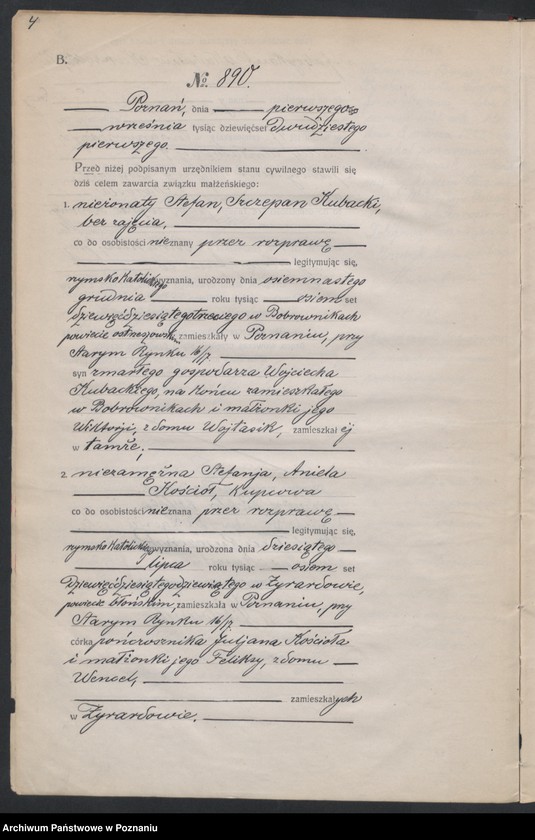 4
B.
No. 890.
Poznań, dnia pierwszego
września tysiąc dziewięćset dwudziestego
pierwszego.
Przed niżej podpisanym urzędnikiem stanu cywilnego stawili się
dziś celem zawarcia związku małżeńskiego:
1. nieżonaty Stefan, Szczepan Kubacki,
bez zajęcia,
co do osobistości nieznany przez rozprawę
legitymując się,
rzymsko katolickiego wyznania, urodzony dnia osiemnastego
grudnia roku tysiąc osiemset
dziewięćdziesiątego trzeciego w Bobrownikach
powiecie ostrzeszowskim, zamieszkały w Poznaniu, przy
Starym Rynku 16/17.
syn zmarłego gospodarza Wojciecha
Kubackiego, na końcu zamieszkałego
w Bobrownikach i małżonki jego
Wiktorji, z domu Wojtasik, zamieszkałej
w tamże,
2. niezamężna Stefanja, Aniela
Kościoł, kupcowa
co do osobistości nieznana przez rozprawę
legitymując się,
rzymsko katolickiego wyznania, urodzona dnia dziesiątego
lipca roku tysiąc osiem set
dziewięćdziesiątego dziewiątego w Żyrardowie,
powiecie Błońskim, zamieszkała w Poznaniu, przy
Starym Rynku 16/17.
córka pończosznika Juljana Kościoła
i małżonki jego Feliksy, z domu
Wencel,
zamieszkałych
w Żyrardowie.
Archiwum Państwowe w Poznaniu